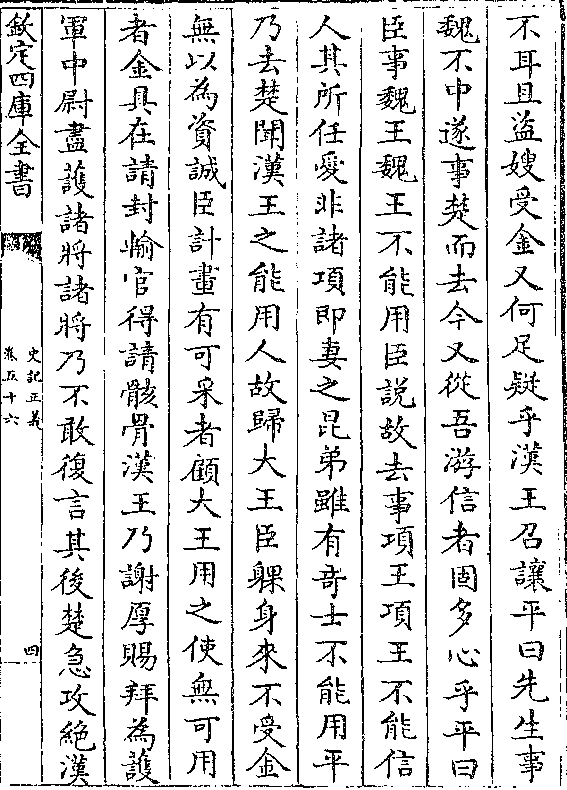 不耳且盜嫂受金又何足疑乎漢王召讓平曰先生事
魏不中遂事楚而去今又從吾游信者固多心乎平曰
臣事魏王魏王不能用臣説故去事項王項王不能信
人其所任愛非諸項即妻之昆弟雖有奇士不能用平
乃去楚聞漢王之能用人故歸大王臣躶身來不受金
無以為資誠臣計畫有可采者顧大王用之使無可用
者金具在請封輸官得請骸骨漢王乃謝厚賜拜為護
軍中尉盡護諸將諸將乃不敢復言其後楚急攻絶漢
欽定四庫全書
史記正義
卷五十六
四